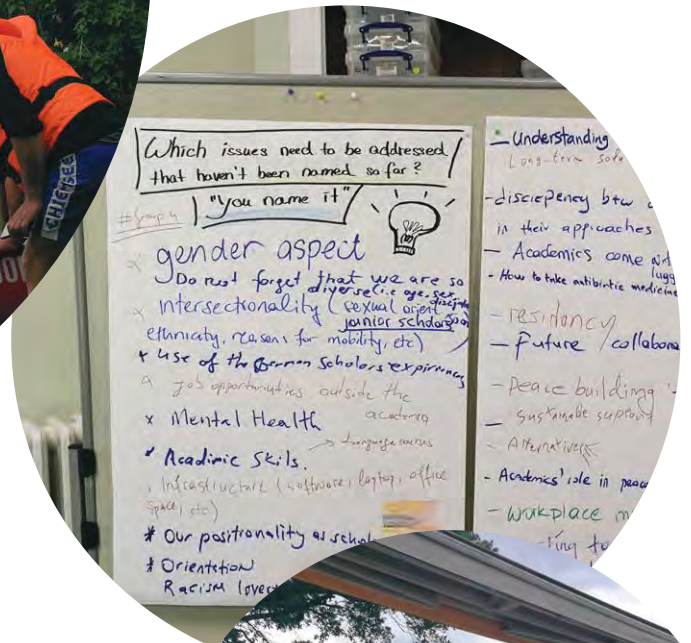 CHIEMSEE
Which issues need to be addressed
that haven't been named so far?
"You name it"
#Group 4
x gender aspect
Do not forget that we are so
diverse (i.e age, sex,
x intersectionality (sexual orient
junior scholars
ethnicity, reasons for mobility, etc)
x Use of the German Scholars expiriences
Job opportunities outside the
academia
x Mental Health
Language courses
Acadimic Skills.
Infrastructure (software, laptop, office
space, etc)
* Our positionality as schol
* Orientation
Racism (over
- Understanding
Long-term
- discrepency btw
in their approaches
- Academics come
lugg
- How to take antibiotic medicine
- residancy
- Future / collabora
- Peace building
- sustainable support
- Alternatives
- Academics' role in peace
- workplace